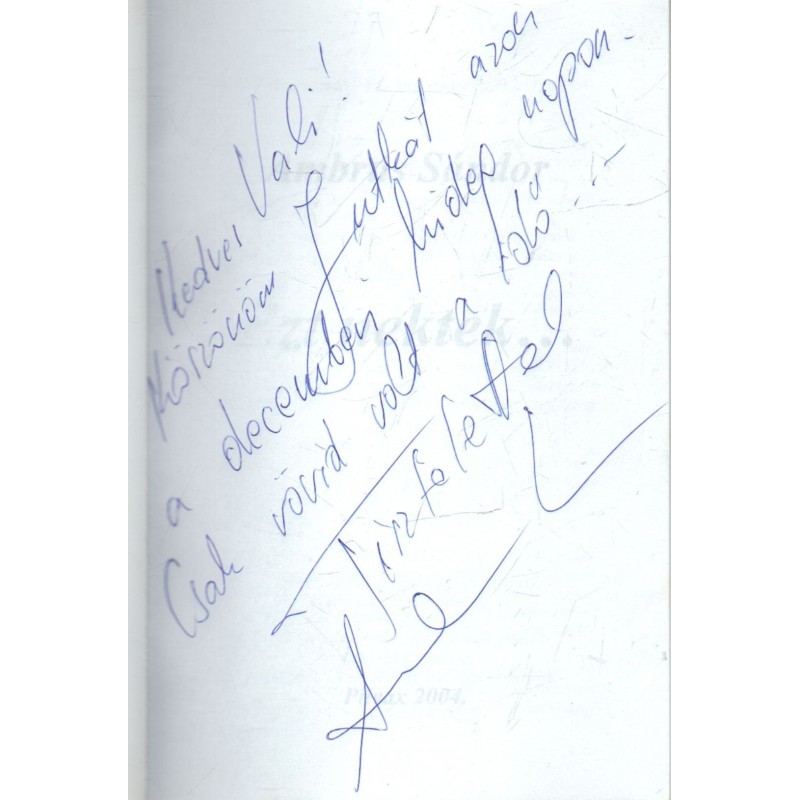 Kedves Vali!
Köszönöm Jutkát azon
a decemberi hideg napon.
Csak rövid volt a idő!
Tisztelettel
Ambrus Sándor
Pilvax 2004.